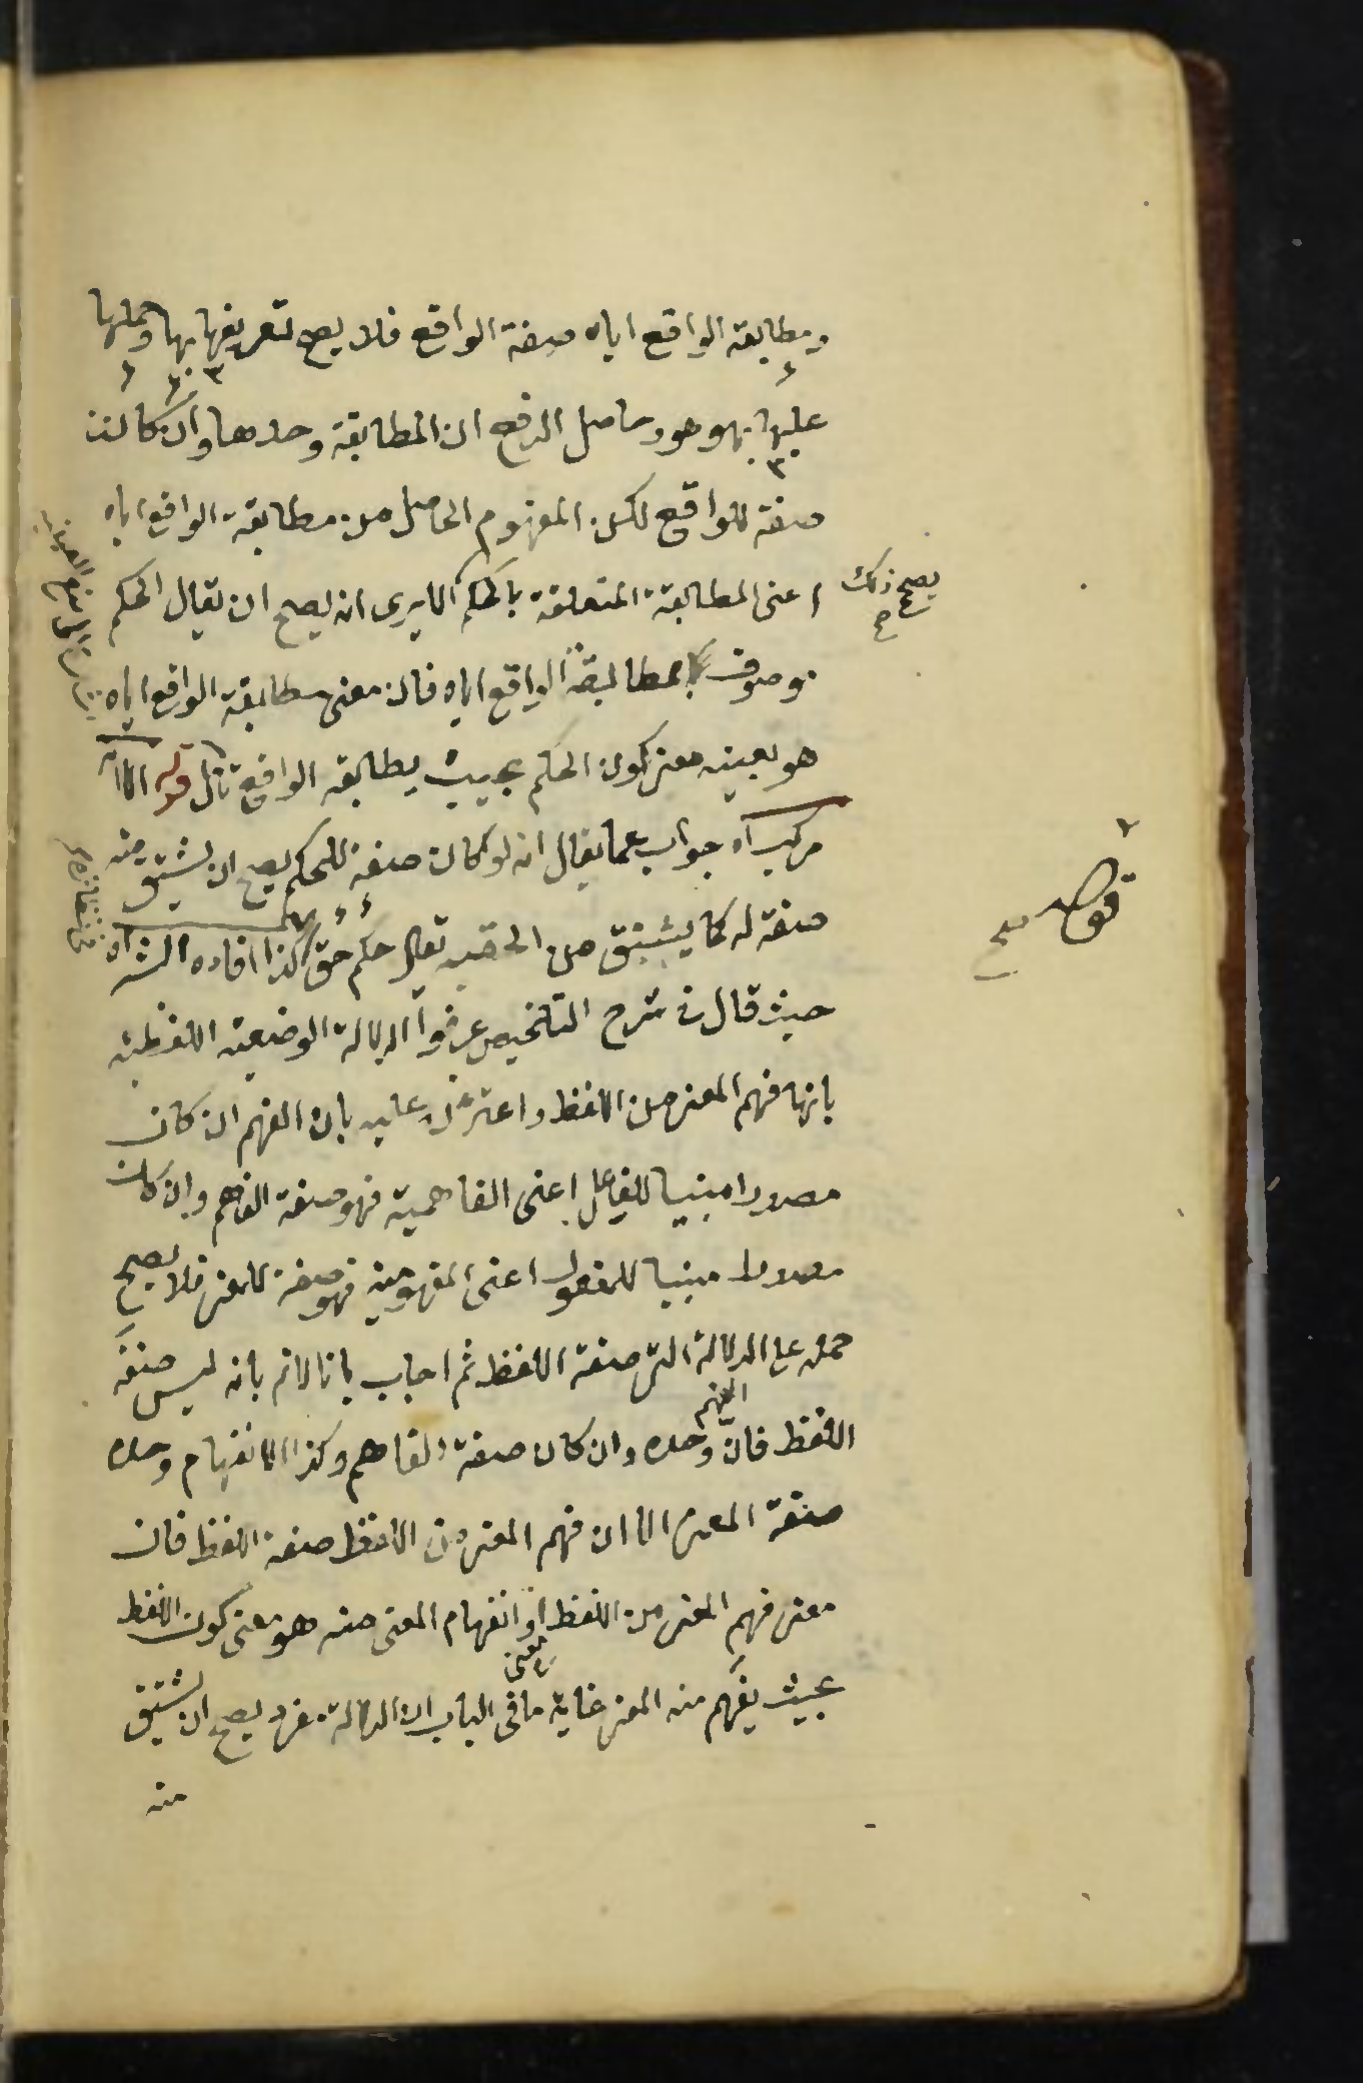 ومطابقة الواقع اياه صفة الواقع فلا يصح تعريفها بها وحملها
عليها بهو هو وحاصل الدفع ان المطابقة وحدها وان كانت
صفة للواقع لكن المفهوم الحاصل من مطابقة الواقع اياه
اعنى المطابقة المتعلقة بالحكم الا يرى انه يصح ان يقال الحكم
يصح ذلك
صح
موصوف بمطابقة الواقع اياه فان معنى مطابقة الواقع اياه
هو بعينه معنى كون الحكم بحيث يطابقه الواقع تأمل قوله الا انه
مركب آه جواب عما يقال انه لو كان صفة للحكم يصح ان يشتق منه
صفة له كما يشتق من الحقية يقال حكم حق كذا افاده الشه
قوله صح
حيث قال فى شرح التلخيص عرفوا الدلالة الوضعية اللفظية
بانها فهم المعنى من اللفظ واعترض عليه بان الفهم ان كان
مصدرا مبنيا للفاعل اعنى الفاهمية فهو صفة الفاهم وان كان
مصدرا مبنيا للمفعول اعنى المفهومية فهو صفة للمعنى فلا يصح
حمله على الدلالة التى صفة اللفظ ثم اجاب بانا لا نم بانه ليس صفة
اللفظ فان الفهم وحده وان كان صفة الفاهم وكذا الانفهام وحده
صفة المعنى الا ان فهم المعنى من اللفظ صفة اللفظ فان
معنى فهم المعنى من اللفظ او انفهام المعنى منه هو معنى كون اللفظ
بحيث يفهم منه المعنى غاية ما فى الباب ان الدلالة مفرد يصح ان يشتق
منه